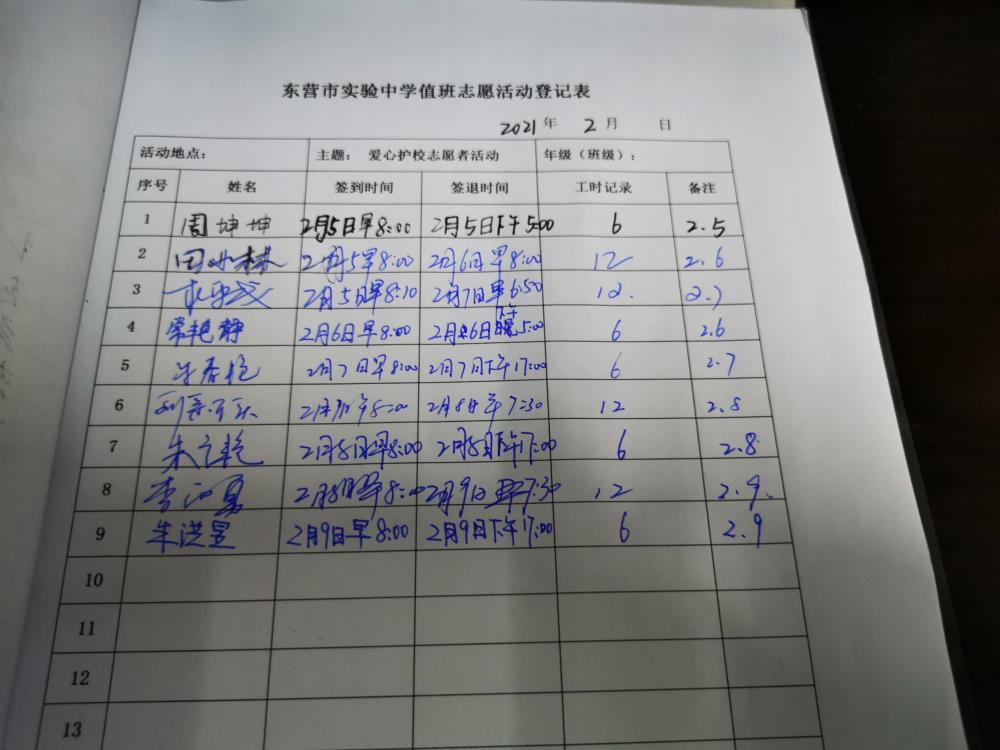 东营市实验中学值班志愿活动登记表
2021 年 2 月 日
活动地点： 主题： 爱心护校志愿者活动 年级（班级）：
序号 姓名 签到时间 签退时间 工时记录 备注
1 周坤坤 2月5日早8:00 2月5日下午5:00 6 2.5
2 田 林 2月5早8:00 2月6日早8:00 12 2.6
3 2月5日早8:10 2月7日早6:50 12. 2.7
4 常艳静 2月6日早8:00 2月6日下午5:00 6 2.6
5 2月7日早8:00 2月7日下午17:00 6 2.7
6 2月 8:00 2月8日早7:30 12 2.8
7 朱 艳 2月8日早8:00 2月8日下午17:00 6 2.8
8 李 2月8日早8:00 2月9日早7:30 12 2.9
9 朱洪昱 2月9日早8:00 2月9日下午17:00 6 2.9
10
11
12
13